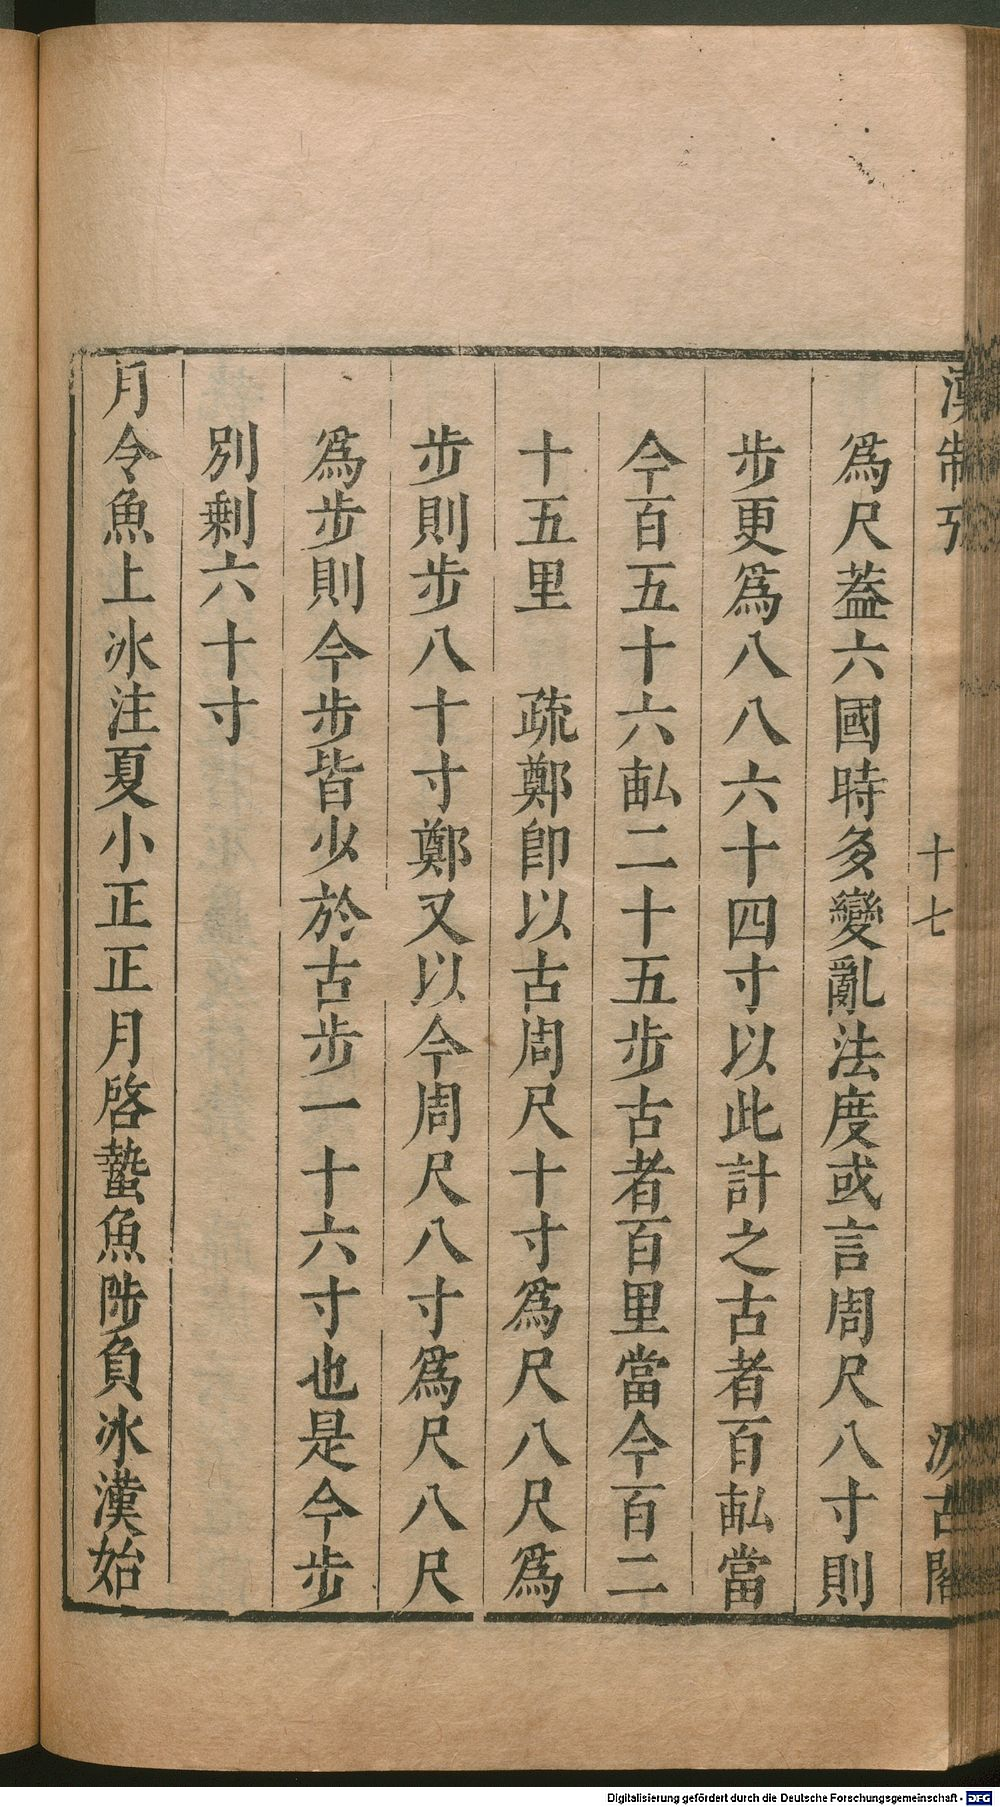 漢制攷　十七　汲古閣
爲尺蓋六國時多變亂法度或言周尺八寸則
步更爲八八六十四寸以此計之古者百畝當
今百五十六畝二十五步古者百里當今百二
十五里　疏鄭卽以古周尺十寸爲尺八尺爲
步則步八十寸鄭又以今周尺八寸爲尺八尺
爲步則今步皆少於古步一十六寸也是今步
別剩六十寸
月令魚上冰注夏小正正月啓蟄魚陟負冰漢始
Digitalisierung gefördert durch die Deutsche Forschungsgemeinschaft - DFG